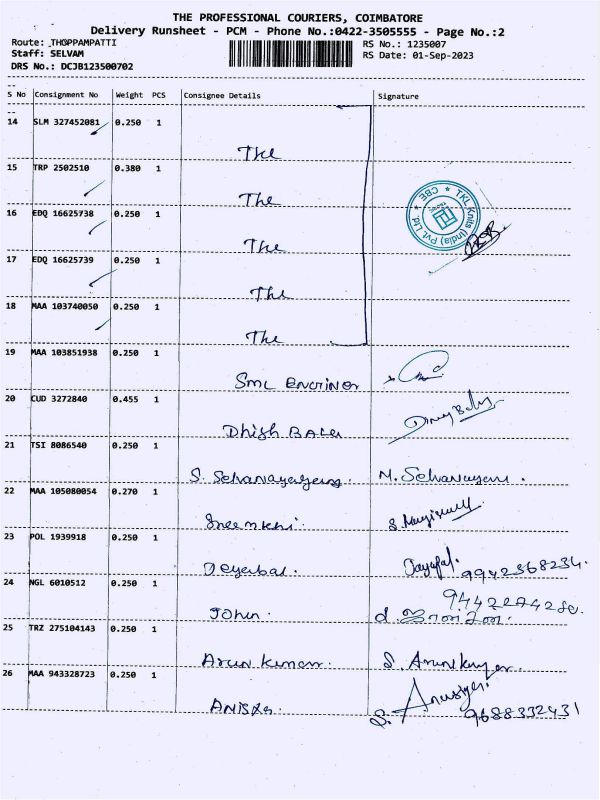 THE PROFESSIONAL COURIERS, COIMBATORE
Delivery Runsheet - PCM - Phone No.:0422-3505555 - Page No.:2
Route: THOPPAMPATTI
RS No.: 1235007
Staff: SELVAM
RS Date: 01-Sep-2023
DRS No.: DCJB123500702
S No Consignment No Weight PCS Consignee Details Signature
14 SLM 327452081 0.250 1
The
15 TRP 2502510 0.380 1
The
TKL Knits (India) (Pvt) Ltd * CBE *
16 EDQ 16625738 0.250 1
The
17 EDQ 16625739 0.250 1
The
18 MAA 103740050 0.250 1
The
19 MAA 103851938 0.250 1
20 CUD 3272840 0.455 1
21 TSI 8086540 0.250 1
22 MAA 105080054 0.270 1
23 POL 1939918 0.250 1
Jeyabal. Jayapal. 9942368234.
24 NGL 6010512 0.250 1
John.
25 TRZ 275104143 0.250 1
Arun Kumar. S. Arunkumar.
26 MAA 943328723 0.250 1
S. Anusiya.
9688332431